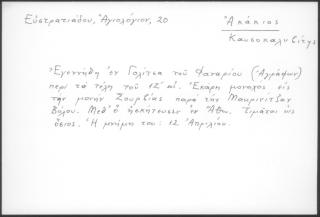 Εὐστρατιάδου, Ἁγιολόγιον, 20
Ἀκάκιος
Καυσοκαλυβίτης
Ἐγεννήθη ἐν Γολίτσᾳ τοῦ Φαναρίου (Ἀγράφων)
περὶ τὰ τέλη τοῦ 17 αἰ. Ἐκάρη μοναχὸς εἰς
τὴν μονὴν Σουρβίας παρὰ τὴν Μακρινίτζαν
Βόλου. Μεθ' ὃ ἠσκήτευσεν ἐν Ἄθῳ. Τιμᾶται ὡς
ὅσιος. Ἡ μνήμη του: 12 Ἀπριλίου.